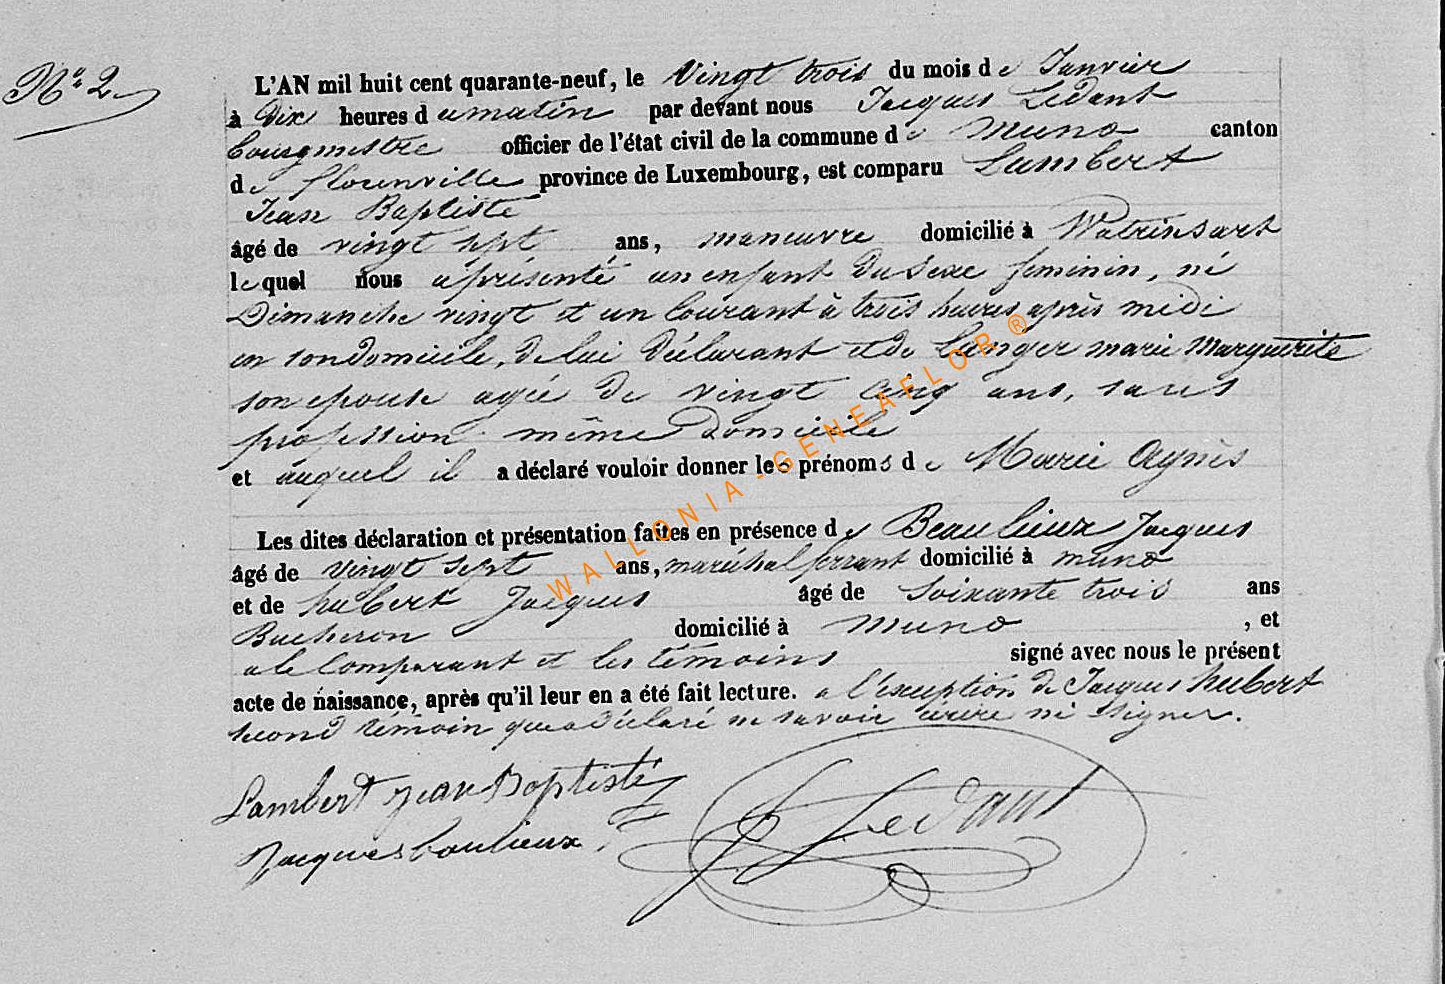 N° 2
L'AN mil huit cent quarante-neuf, le Vingt trois du mois de Janvier
à Dix heures du matin par devant nous Jacques Ledant
bourgmestre officier de l'état civil de la commune de Muno canton
de florenville province de Luxembourg, est comparu Lambert
Jean Baptiste
âgé de vingt sept ans, maneuvre domicilié à Watrinsart
lequel nous a présenté un enfant du sexe feminin, né
Dimanche vingt et un Courant à trois heures après midi
en son domicile, de lui Déclarant et de marie Marguerite
son epouse agée de vingt cinq ans, sans
profession même Domicile
et auquel il a déclaré vouloir donner les prénoms de Marie Agnès
Les dites déclaration et présentation faites en présence de Beaulieux Jacques
âgé de vingt sept ans, maréchal ferrant domicilié à muno
et de hubert Jacques âgé de Soixante trois ans
Bucheron domicilié à Muno , et
a le Comparant et les témoins signé avec nous le présent
acte de naissance, après qu'il leur en a été fait lecture. a l'exception de Jacques hubert
second témoin qui a Déclaré ne savoir écrire ni signer.
Lambert jean Baptiste
Jacques baulieux
J Ledant
WALLONIA-GENEAFLOR ®